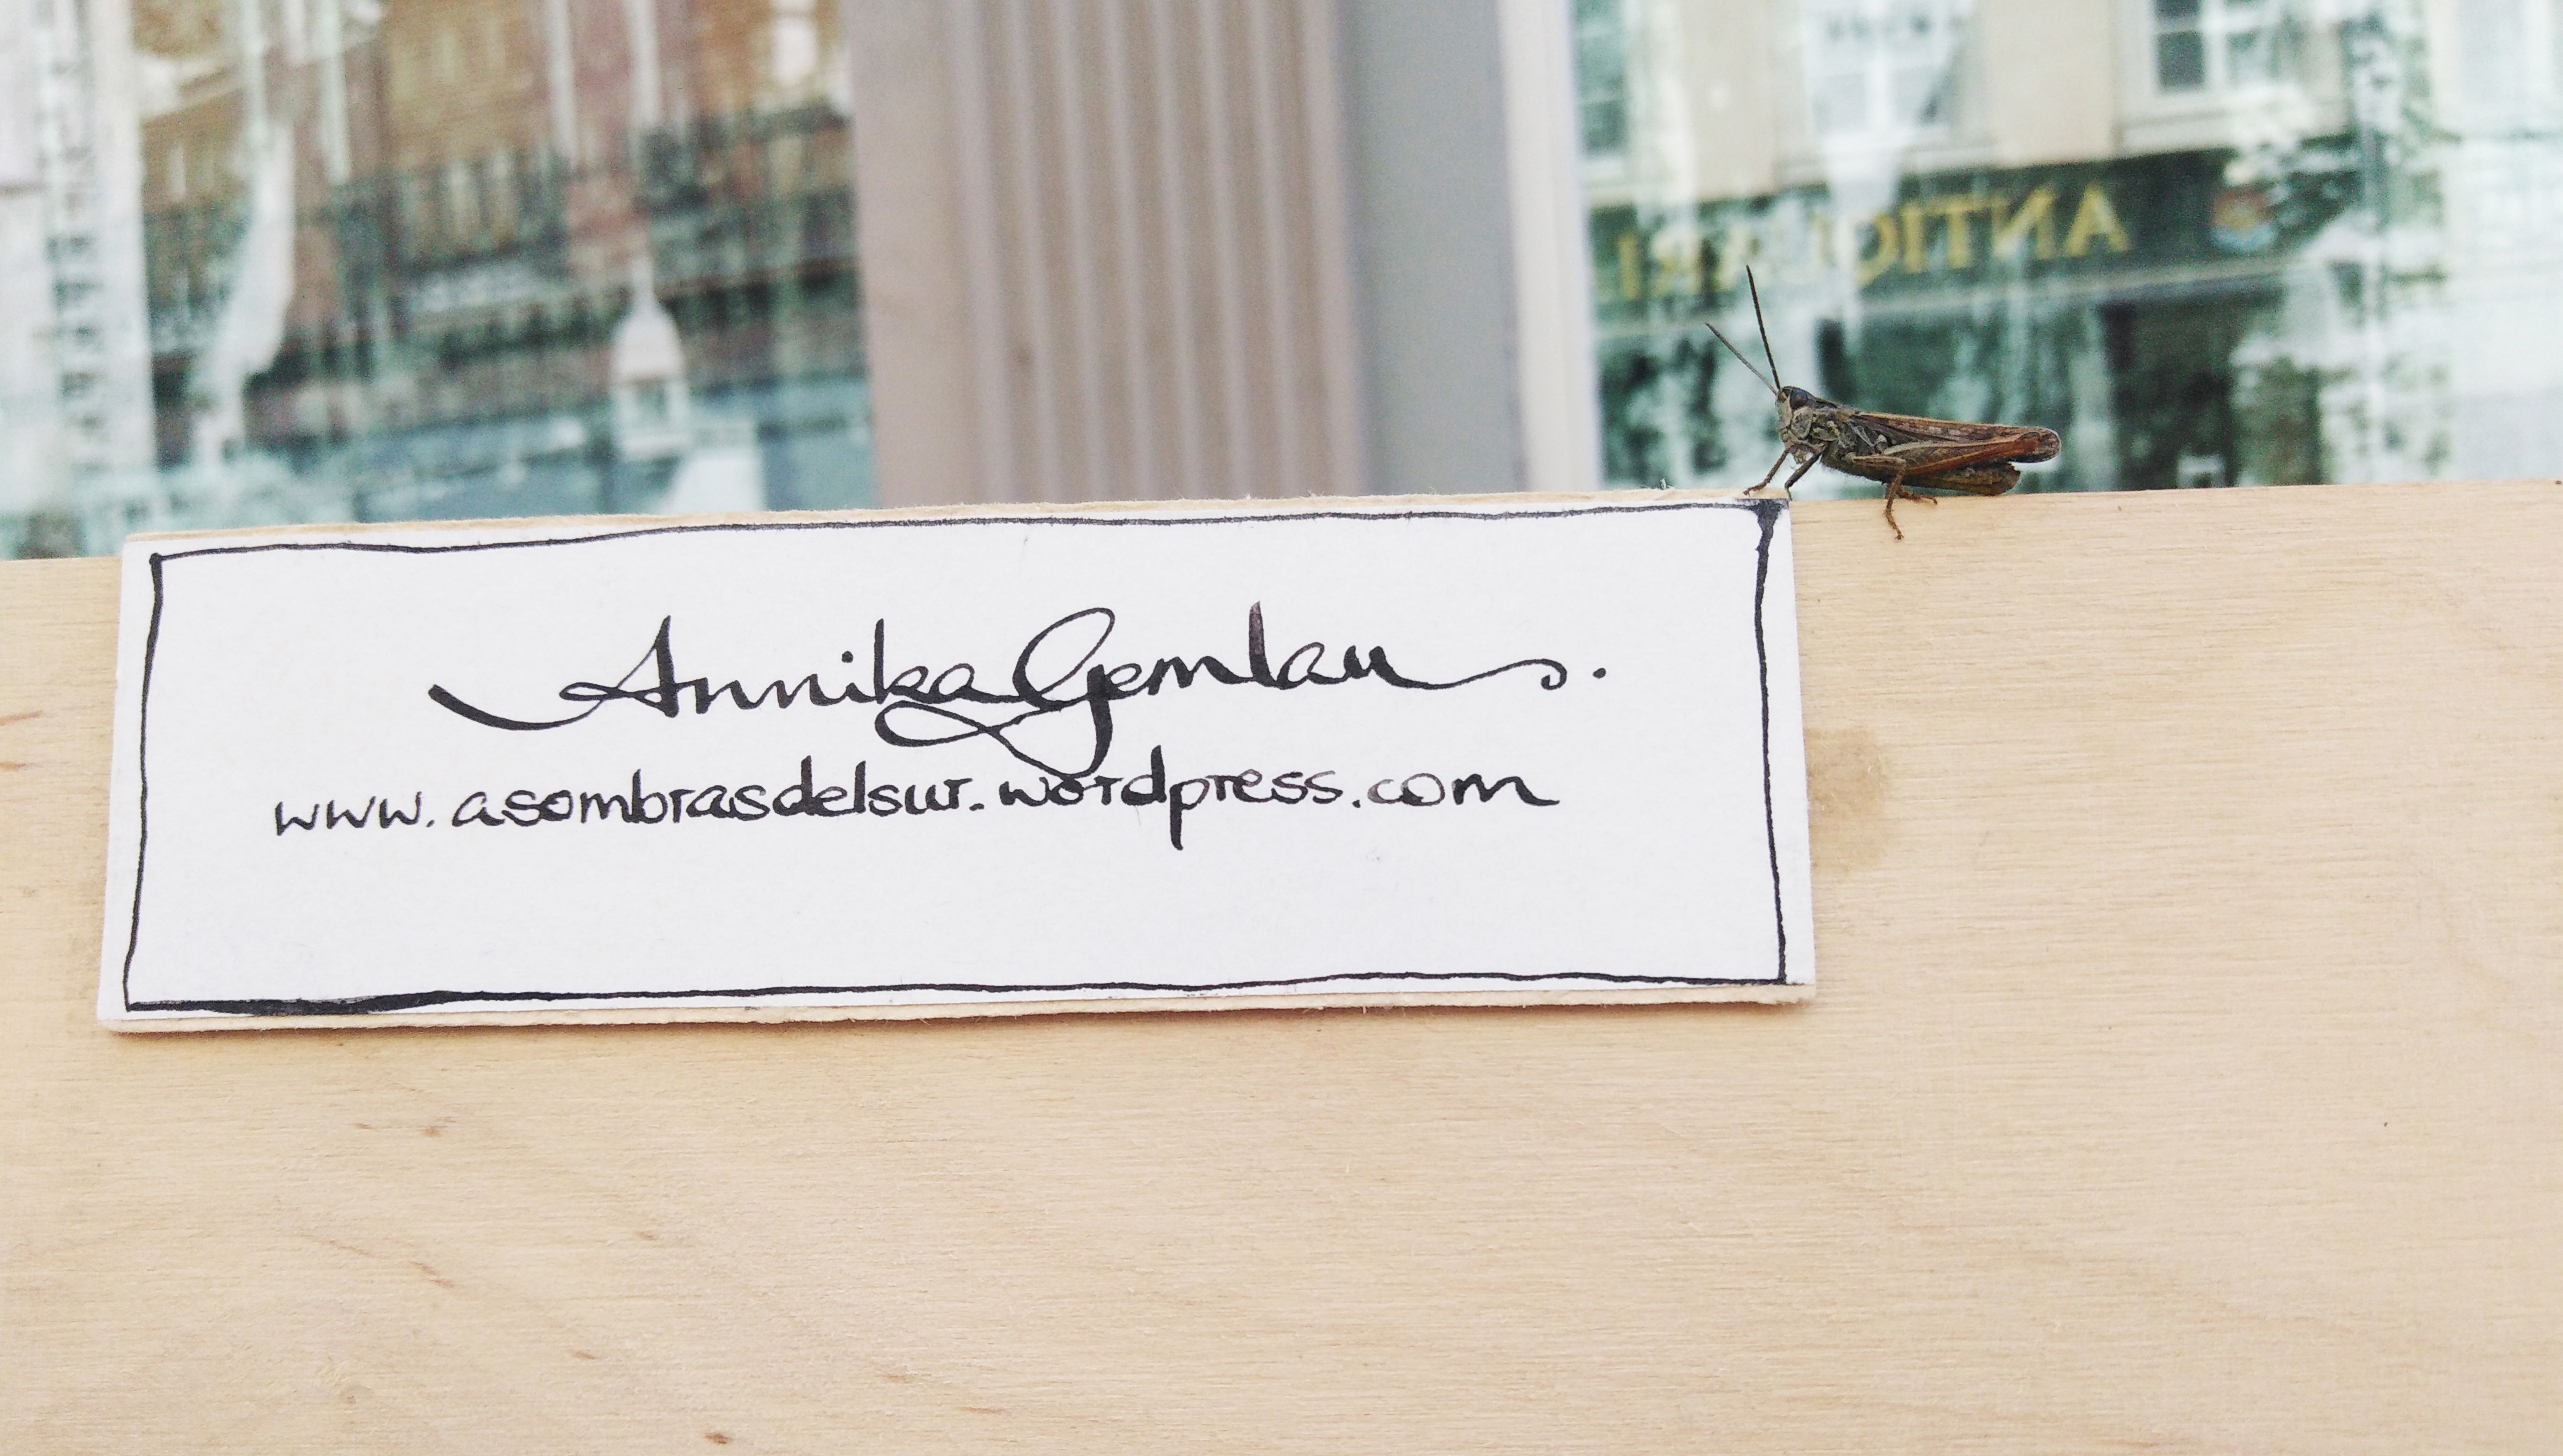 ANTIQUARI
Annika Gemlau.
www.asombrasdelsur.wordpress.com